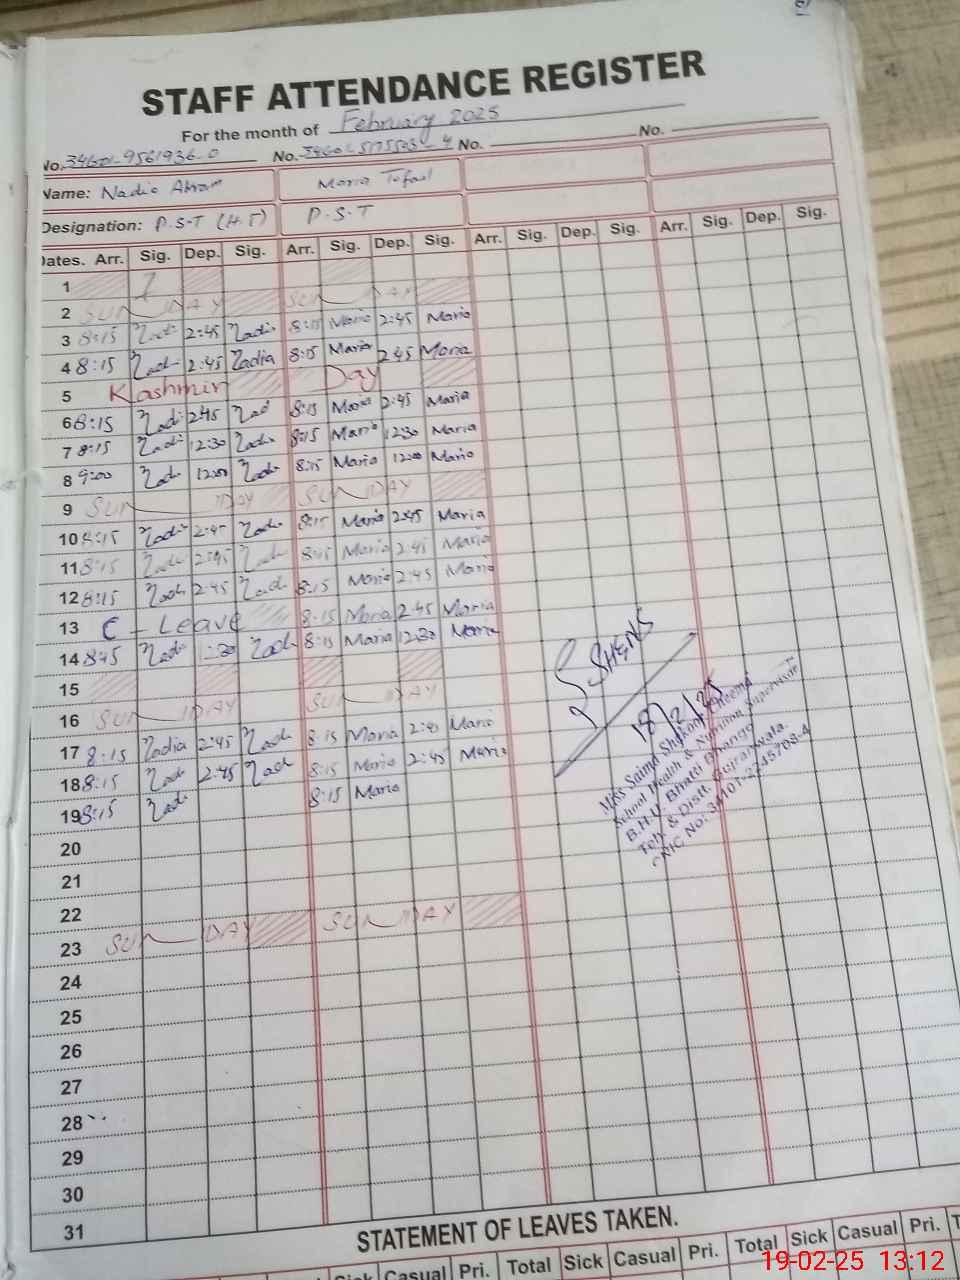 STAFF ATTENDANCE REGISTER
For the month of February 2025
No. No. No. No.
Name: Nadia Akram Maria Tufail
Designation: P.S.T (H.T) P.S.T
Dates. Arr. Sig. Dep. Sig. Arr. Sig. Dep. Sig. Arr. Sig. Dep. Sig. Arr. Sig. Dep. Sig.
1
2 SUNDAY SUNDAY
3 8:15 Nadi 2:45 Nadi 8:15 Maria 2:45 Maria
4 8:15 Nadi 2:45 Nadia 8:15 Maria 2:45 Maria
5 Kashmir Day
6 8:15 Nadi 2:45 Nad 8:15 Maria 2:45 Maria
7 8:15 Nadi 12:30 Nadi 8:15 Maria 12:30 Maria
8 9:00 Nadi 12:00 Nadi 8:15 Maria 12:00 Maria
9 SUNDAY SUNDAY
10 8:15 Nadi 2:45 Nadi 8:15 Maria 2:45 Maria
11 8:15 Nadi 2:45 Nadi 8:15 Maria 2:45 Maria
12 8:15 Nadi 2:45 Nadi 8:15 Maria 2:45 Maria
13 C - Leave 8:15 Maria 2:45 Maria
14 8:15 Nadi 12:30 Nadi 8:15 Maria 12:30 Maria
15
16 SUNDAY SUNDAY
17 8:15 Nadia 2:45 Nadi 8:15 Maria 2:45 Maria
18 8:15 Nadi 2:45 Nad 8:15 Maria 2:45 Maria
19 8:15 Nadi 8:15 Maria
20
21
22
23 SUNDAY SUNDAY
24
25
26
27
28
29
30
31
SHENS
18/2/25
Miss Saima Shykoor Cheema
School Health & Nutrition Supervisor
B.H.U. Bhatti Bhango
Teh. & Distt. Gujranwala.
CNIC No: 34101-2245708-4
STATEMENT OF LEAVES TAKEN.
Sick Casual Pri. Total Sick Casual Pri. Total Sick Casual Pri.
19-02-25 13:12